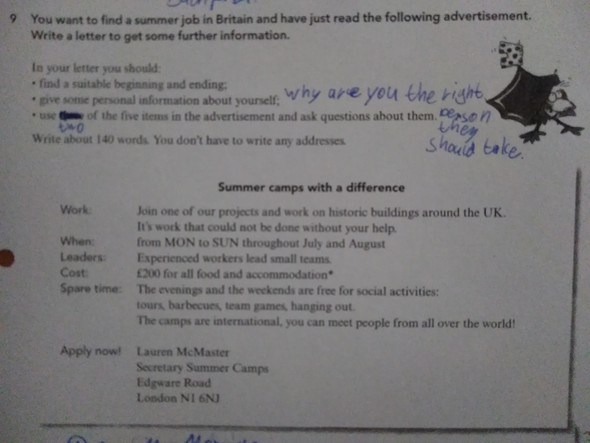 9 You want to find a summer job in Britain and have just read the following advertisement.
Write a letter to get some further information.
In your letter you should:
• find a suitable beginning and ending;
• give some personal information about yourself; why are you the right
• use two of the five items in the advertisement and ask questions about them. person
they
should take.
Write about 140 words. You don't have to write any addresses.
Summer camps with a difference
Work: Join one of our projects and work on historic buildings around the UK.
It's work that could not be done without your help.
When: from MON to SUN throughout July and August
Leaders: Experienced workers lead small teams.
Cost: £200 for all food and accommodation*
Spare time: The evenings and the weekends are free for social activities:
tours, barbecues, team games, hanging out.
The camps are international, you can meet people from all over the world!
Apply now! Lauren McMaster
Secretary Summer Camps
Edgware Road
London N1 6NJ